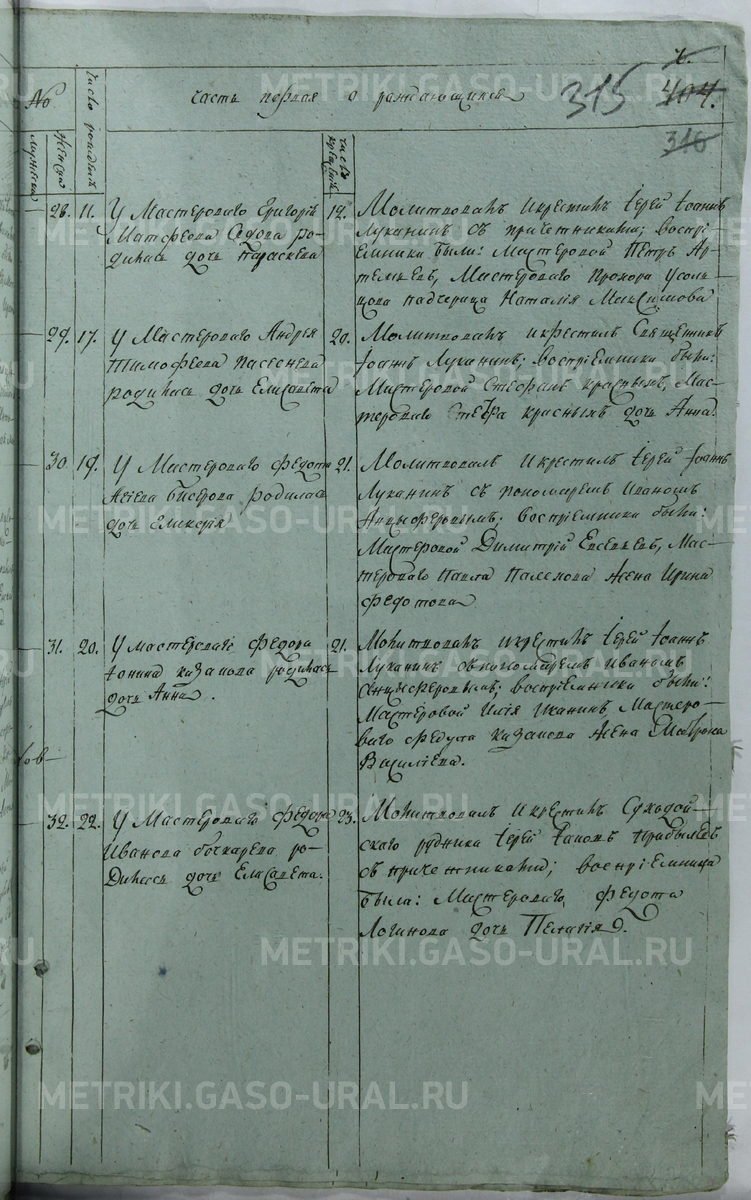 1.
404.
315
316
№
мужеска
женска
число рождения
Часть первая о раждающихся
число крещения
28. 11. У Мастероваго Григорья
Матфеева Седова ро-
дилась дочь Параскева
12. Молитвовалъ и крестилъ Іерей Іоаннъ
Луканинъ съ причетниками; воспрі-
емники были: Мастеровой Петръ Ар-
темьевъ, Мастероваго Прохора Усоль-
цова падчерица Наталія Максимова
29. 17. У Мастероваго Андрея
Тимофеева
родилась дочь Елисавета
20. Молитвовалъ и крестилъ Священникъ
Іоаннъ Луканинъ; воспріемники были:
Мастеровой Стефанъ Красныхъ, Мас-
тероваго Красныхъ дочь Анна.
30. 19. У Мастероваго Федота
родилась
дочь Гликерія
21. Молитвовалъ и крестилъ Іерей Іоаннъ
Луканинъ съ пономаремъ Иваномъ
Анцыферовымъ; воспріемники были:
Мастеровой Димитрій Евсевьевъ, Мас-
тероваго Павла жена Ирина
Федотова
31. 20. У мастероваго Федора
Іонина Казанова родилась
дочь Анна.
21. Молитвовалъ и крестилъ Іерей Іоаннъ
Луканинъ съ пономаремъ Иваномъ
Анцыферовымъ; воспріемники были:
Мастеровой Илія Мастеро-
ваго Федула Казанова жена Мавра
Василіева.
32. 22. У Мастероваго Федора
Иванова Бочкарева ро-
дилась дочь Елисавета.
23. Молитвовалъ и крестилъ
скаго рудника Іерей Іаковъ Прибылевъ
съ причетниками; воспріемница
была: Мастероваго Федота
Логинова дочь Пелагія.
METRIKI.GASO-URAL.RU